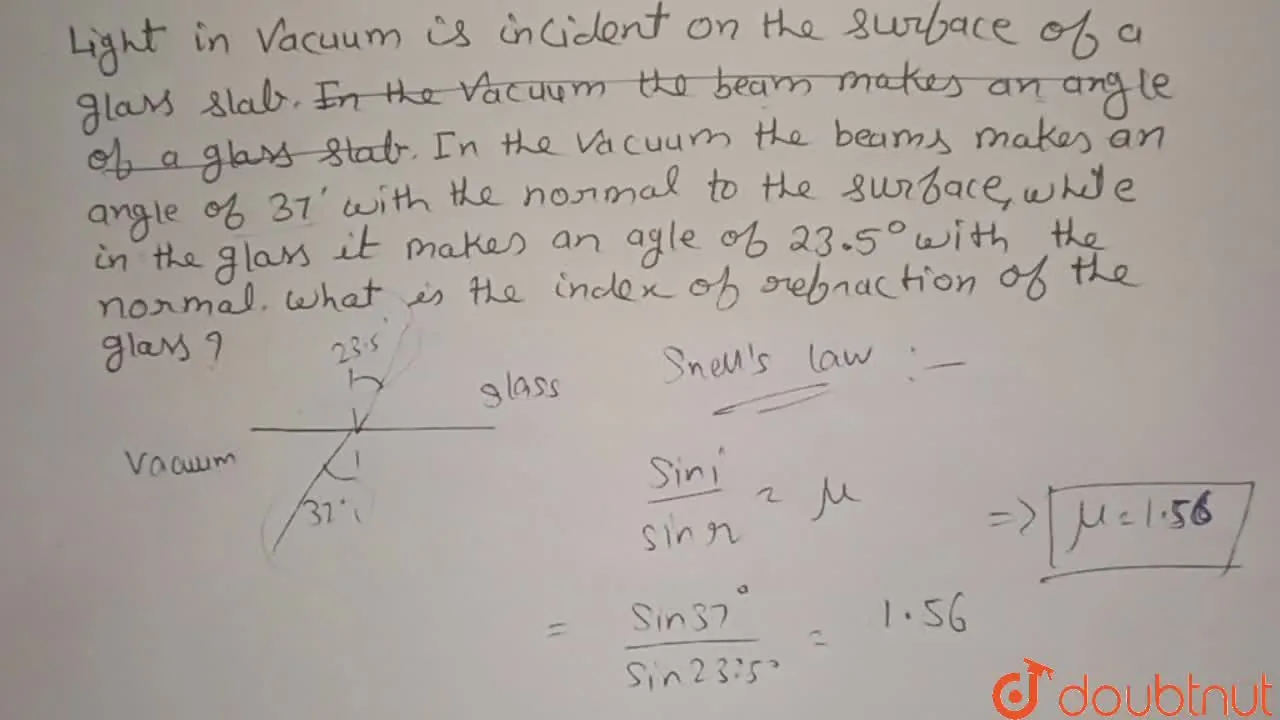 Light in Vacuum is incident on the surface of a
glass slab. In the Vacuum the beam makes an angle
of a glass slab. In the Vacuum the beams makes an
angle of 37° with the normal to the surface, while
in the glass it makes an agle of 23.5° with the
normal. What is the index of refraction of the
glass?
23.5°
glass
Vacuum
37°
i
Snell's law :-
sin i
sin r
= μ
= sin 37°
sin 23.5°
= 1.56
=> μ = 1.56
doubtnut